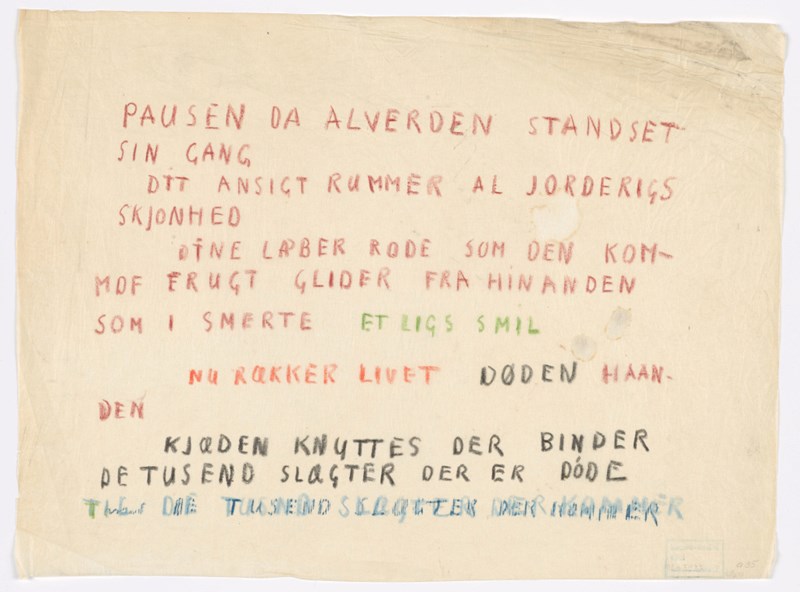 PAUSEN DA ALVERDEN STANDSET
SIN GANG
DIT ANSIGT RUMMER AL JORDERIGS
SKJONHED
DINE LÆBER RØDE SOM DEN KOM-
MDE FRUGT GLIDER FRA HINANDEN
SOM I SMERTE ET LIGS SMIL
NU RÆKKER LIVET DØDEN HAAN-
DEN
KJÆDEN KNYTTES DER BINDER
DE TUSEND SLÆGTER DER ER DØDE
TIL DE TUSEND SLÆGTER DER KOMMER